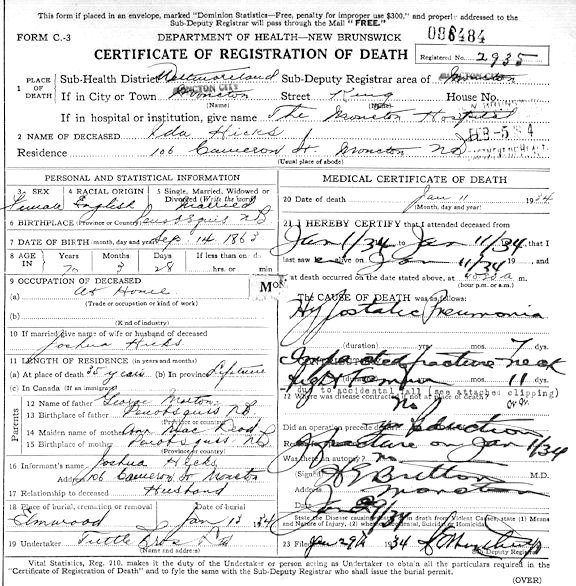 This form if placed in an envelope, marked "Dominion Statistics—Free, penalty for improper use $300," and properly addressed to the
Sub-Deputy Registrar will pass through the Mail "FREE."
086484
FORM C.-3 DEPARTMENT OF HEALTH—NEW BRUNSWICK
CERTIFICATE OF REGISTRATION OF DEATH Registered No. 2935
1 PLACE OF DEATH
Sub-Health District Westmoreland Sub-Deputy Registrar area of Moncton
MONCTON CITY
If in City or Town Moncton Street King House No.
(Name) (Name)
If in hospital or institution, give name The Moncton Hospital
2 NAME OF DECEASED Ida Hicks
FEB -5
Residence 106 Cameron St. Moncton NB
(Usual place of abode)
PERSONAL AND STATISTICAL INFORMATION
3 SEX 4 RACIAL ORIGIN 5 Single, Married, Widowed or Divorced (Write the word)
Female English Married
6 BIRTHPLACE (Province or Country) Penobsquis NB
7 DATE OF BIRTH (month, day and year) Sep. 14 1863
8 AGE IN Years Months Days If less than one day
70 3 28 hrs. or min.
9 OCCUPATION OF DECEASED
(a) At Home
(Trade or occupation or kind of work)
(b)
(Kind of industry)
10 If married give name of wife or husband of deceased
Joshua Hicks
11 LENGTH OF RESIDENCE (in years and months)
(a) At place of death 35 years (b) In province Lifetime
(c) In Canada (If an immigrant)
Parents
12 Name of father George Morton
13 Birthplace of father Penobsquis NB
(Province or country)
14 Maiden name of mother
15 Birthplace of mother Penobsquis NB
(Province or country)
16 Informant's name Joshua Hicks
Address 106 Cameron St Moncton
17 Relationship to deceased Husband
18 Place of burial, cremation or removal Date of burial
Elmwood Jan 13 34
19 Undertaker Tuttle Bros Ltd
(Name and address)
MEDICAL CERTIFICATE OF DEATH
20 Date of death Jan 11 1934
(Month, day and year)
21 I HEREBY CERTIFY that I attended deceased from
Jan 1/34 to Jan 11/34 that I
last saw alive on Jan 11/34 19
at death occurred on the date stated above, at a.m.
(hour p.m. or a.m.)
The CAUSE OF DEATH was as follows:
Hypostatic Pneumonia
(duration) yrs. mos. 7 dys.
Impacted fracture neck
right femur
(duration) yrs. mos. 11 dys.
due to accidental fall (see attached clipping)
22 Where was disease contracted if not at place of death?
No
Did an operation precede death? For reduction
of fracture on Jan 1/34
Was there an autopsy? No
(Signed) Britton M.D.
Address Moncton
Jan 29/34
State the Disease causing Death, or in deaths from Violent Causes, state (1) Means and Nature of Injury, (2) whether Accidental, Suicidal or Homicidal.
23 Filed Jan 29th 1934
Sub-Deputy Registrar
Vital Statistics, Reg. 210, makes it the duty of the Undertaker or person acting as Undertaker to obtain all the particulars required in the
"Certificate of Registration of Death" and to fyle the same with the Sub-Deputy Registrar who shall issue the burial permit.
(OVER)